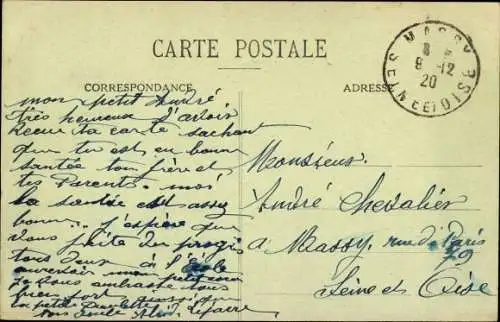 CARTE POSTALE
CORRESPONDANCE
ADRESSE
MASSY
8
9-12
20
SEINE ET OISE
mon petit André
très heureux d'avoir
recu ta carte sachant
que tu est en bonne
santée ton frère et
tes Parents. moi
la santée est assez
bonne. j'espère que
vous faite du progrès
tous deux à l'école
mon petit
je vous embrasse tous
bien fort aussi
la petite
Lefaivre
Monsieur
André Chevalier
a Massy, rue de Paris
79
Seine et Oise